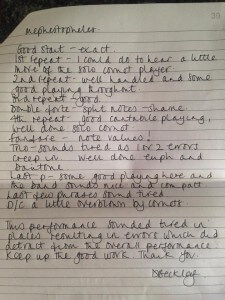 mephestopheles
Good start - exact.
1st repeat - I could do to hear a little
more of the solo cornet player
2nd repeat - well handled and some
good playing throughout
3rd repeat - good.
Double forte - split notes - shame
4th repeat - good cantabile playing,
well done solo cornet
fanfare - note values!
Trio - sounds tired as 1 or 2 errors
creep in. well done euph and
baritone
Last p - some good playing here and
the band sounds nice and compact
Last few phrases sound tired
D/C a little overblown by cornets
This performance sounded tired in
places resulting in errors which did
detract from the overall performance.
Keep up the good work. Thank you.